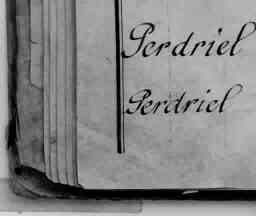 Perdriel
Perdriel